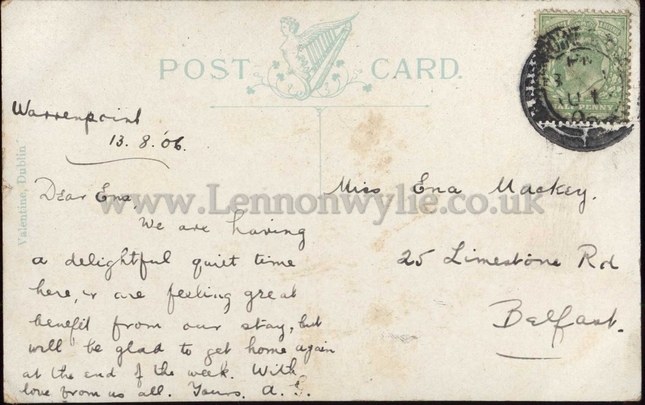 POST CARD.
Warrenpoint
13. 8. '06.
Dear Ena,
We are having
a delightful quiet time
here, & are feeling great
benefit from our stay, but
will be glad to get home again
at the end of the week. With
love from us all. Yours. A. G.
Miss Ena Mackey.
25 Limestone Rd
Belfast.
Valentine, Dublin
www.Lennonwylie.co.uk
HALFPENNY